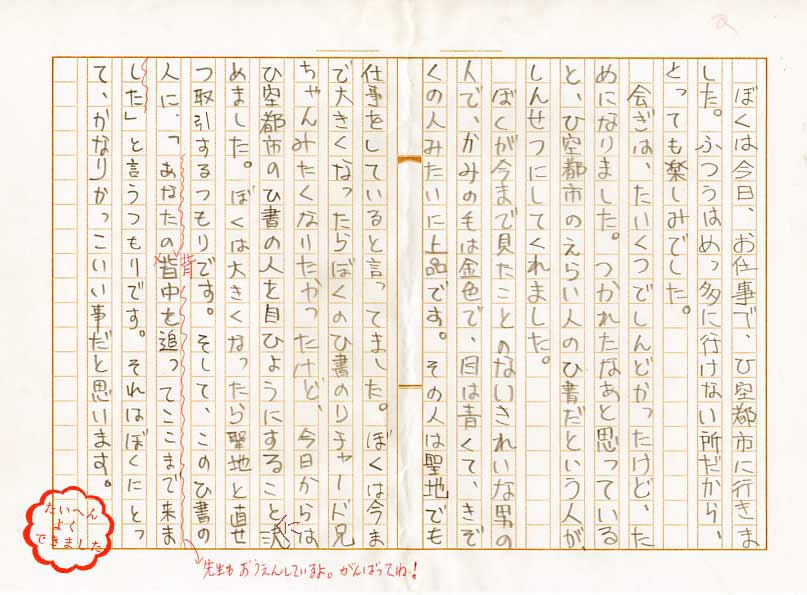 ぼくは今日、お仕事で、ひ空都市に行きま
した。ふつうはめっ多に行けない所だから、
とっても楽しみでした。
会ぎは、たいくつでしんどかったけど、た
めになりました。つかれたなあと思っている
と、ひ空都市のえらい人のひ書だという人が、
しんせつにしてくれました。
ぼくが今まで見たことのないきれいな男の
人で、かみの毛は金色で、目は青くて、きぞ
くの人みたいに上品です。その人は聖地でも
仕事をしていると言ってました。ぼくは今ま
で大きくなったらぼくのひ書のリチャード兄
ちゃんみたくなりたかったけど、今日からは
ひ空都市のひ書の人を目ひょうにすることに決
めました。ぼくは大きくなったら聖地と直せ
つ取引するつもりです。そして、このひ書の
人に、「あなたの背中を追ってここまで来ま
背
した」と言うつもりです。それはぼくにとっ
て、かなりかっこいい事だと思います。
先生もおうえんしているよ。がんばってね!
たいへん
よく
できました